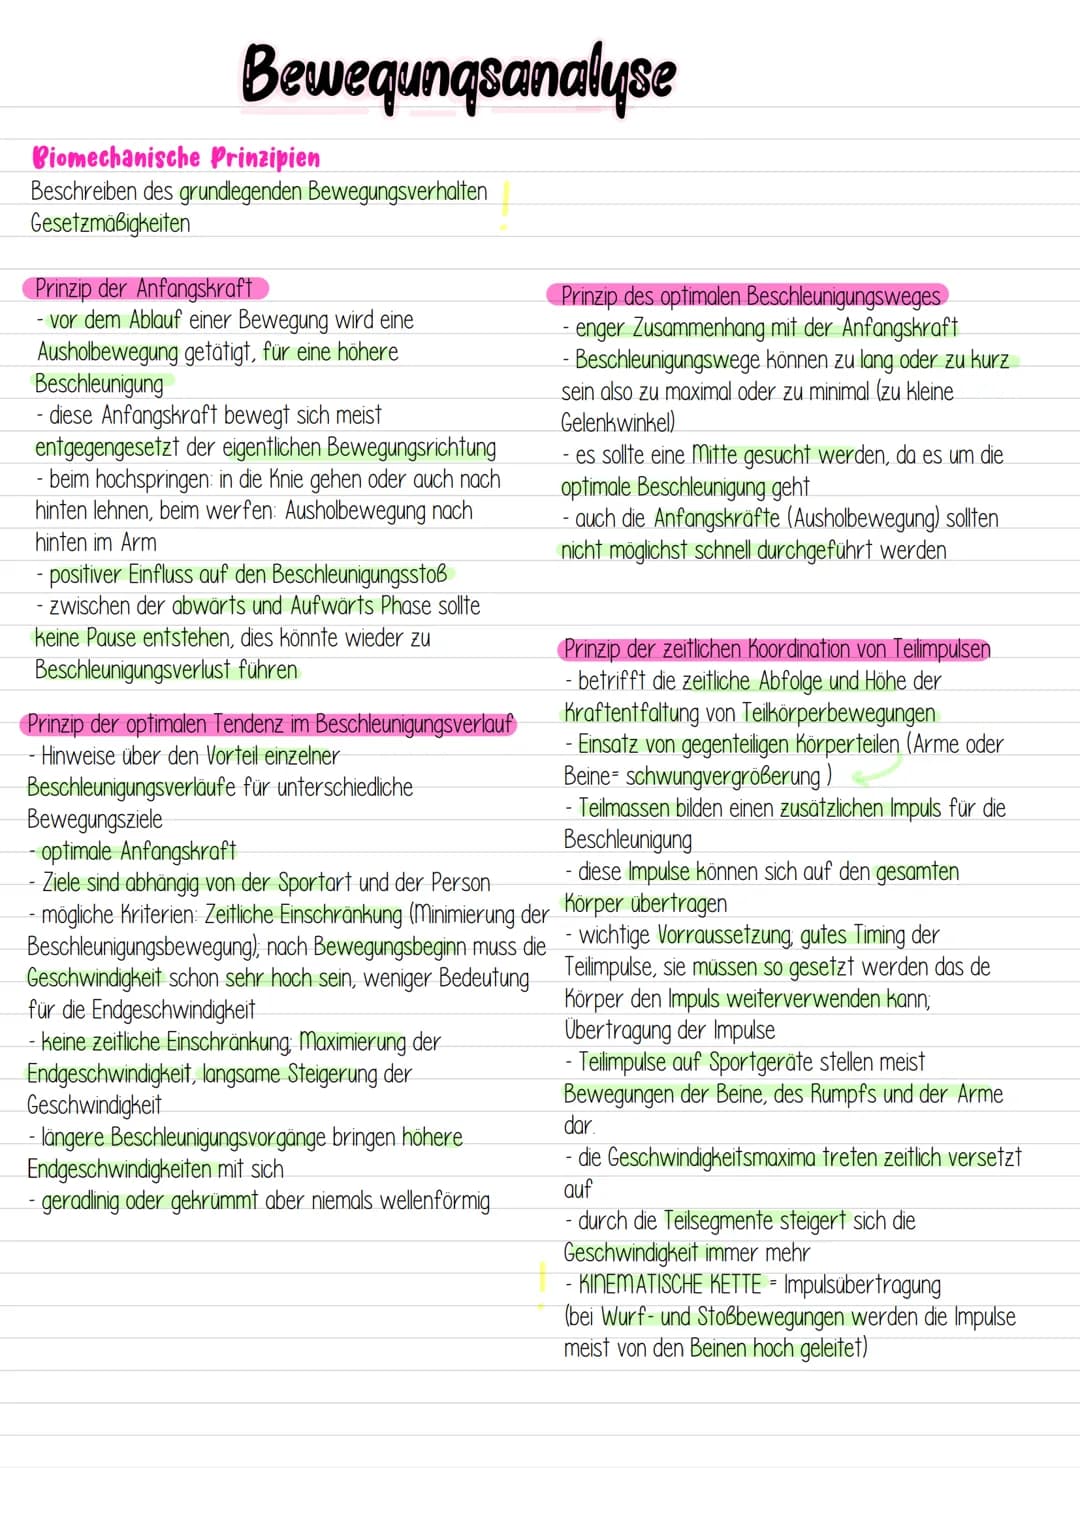 Bewegungsanalyse
Biomechanische Prinzipien
Beschreiben des grundlegenden Bewegungsverhalten
Gesetzmäßigkeiten
!
Prinzip der Anfangskraft
- vor dem Ablauf einer Bewegung wird eine
Ausholbewegung getätigt, für eine höhere
Beschleunigung
- diese Anfangskraft bewegt sich meist
entgegengesetzt der eigentlichen Bewegungsrichtung
- beim hochspringen: in die Knie gehen oder auch nach
hinten lehnen, beim werfen: Ausholbewegung nach
hinten im Arm
- positiver Einfluss auf den Beschleunigungsstoß
- zwischen der abwärts und Aufwärts Phase sollte
keine Pause entstehen, dies könnte wieder zu
Beschleunigungsverlust führen
Prinzip der optimalen Tendenz im Beschleunigungsverlauf
- Hinweise über den Vorteil einzelner
Beschleunigungsverläufe für unterschiedliche
Bewegungsziele
- optimale Anfangskraft
- Ziele sind abhängig von der Sportart und der Person
- mögliche Kriterien: Zeitliche Einschränkung (Minimierung der
Beschleunigungsbewegung); nach Bewegungsbeginn muss die
Geschwindigkeit schon sehr hoch sein, weniger Bedeutung
für die Endgeschwindigkeit
- keine zeitliche Einschränkung; Maximierung der
Endgeschwindigkeit, langsame Steigerung der
Geschwindigkeit
- längere Beschleunigungsvorgänge bringen höhere
Endgeschwindigkeiten mit sich
- geradlinig oder gekrümmt aber niemals wellenförmig
Prinzip des optimalen Beschleunigungsweges
- enger Zusammenhang mit der Anfangskraft
- Beschleunigungswege können zu lang oder zu kurz
sein also zu maximal oder zu minimal (zu kleine
Gelenkwinkel)
- es sollte eine Mitte gesucht werden, da es um die
optimale Beschleunigung geht
- auch die Anfangskräfte (Ausholbewegung) sollten
nicht möglichst schnell durchgeführt werden
Prinzip der zeitlichen Koordination von Teilimpulsen
- betrifft die zeitliche Abfolge und Höhe der
Kraftentfaltung von Teilkörperbewegungen
- Einsatz von gegenteiligen Körperteilen (Arme oder
Beine= schwungvergrößerung )
- Teilmassen bilden einen zusätzlichen Impuls für die
Beschleunigung
- diese Impulse können sich auf den gesamten
Körper übertragen
- wichtige Vorraussetzung; gutes Timing der
Teilimpulse, sie müssen so gesetzt werden das de
Körper den Impuls weiterverwenden kann;
Übertragung der Impulse
- Teilimpulse auf Sportgeräte stellen meist
Bewegungen der Beine, des Rumpfs und der Arme
dar.
- die Geschwindigkeitsmaxima treten zeitlich versetzt
auf
- durch die Teilsegmente steigert sich die
Geschwindigkeit immer mehr
! - KINEMATISCHE KETTE = Impulsübertragung
(bei Wurf- und Stoßbewegungen werden die Impulse
meist von den Beinen hoch geleitet)